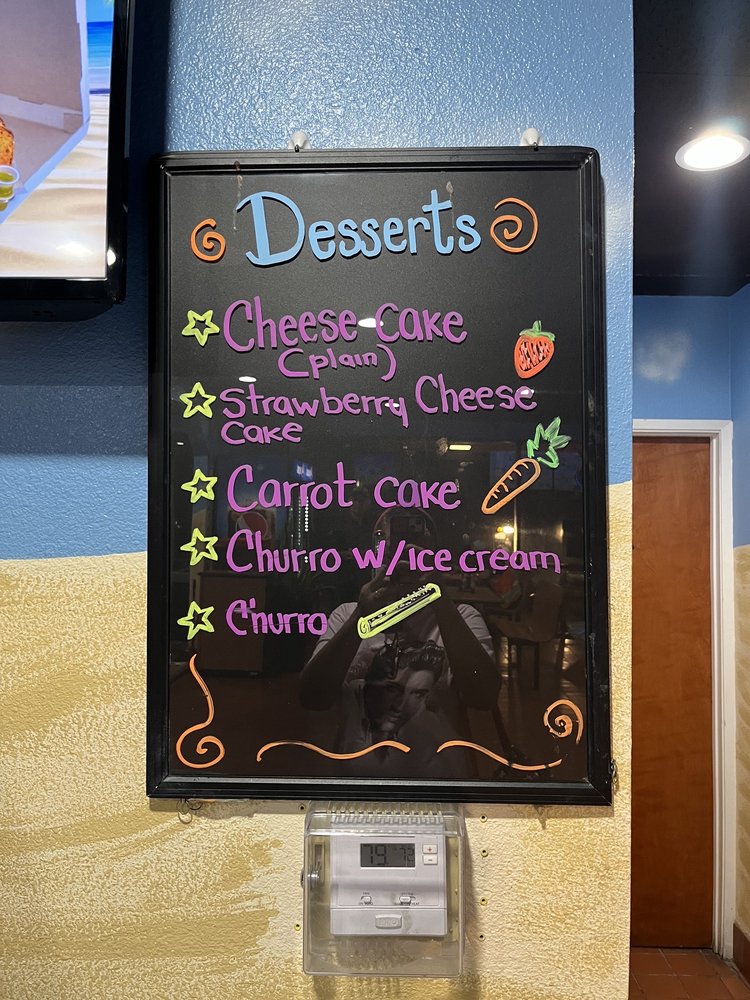 Desserts
Cheese Cake
(plain)
Strawberry Cheese
Cake
Carrot Cake
Churro w/Ice cream
Churro